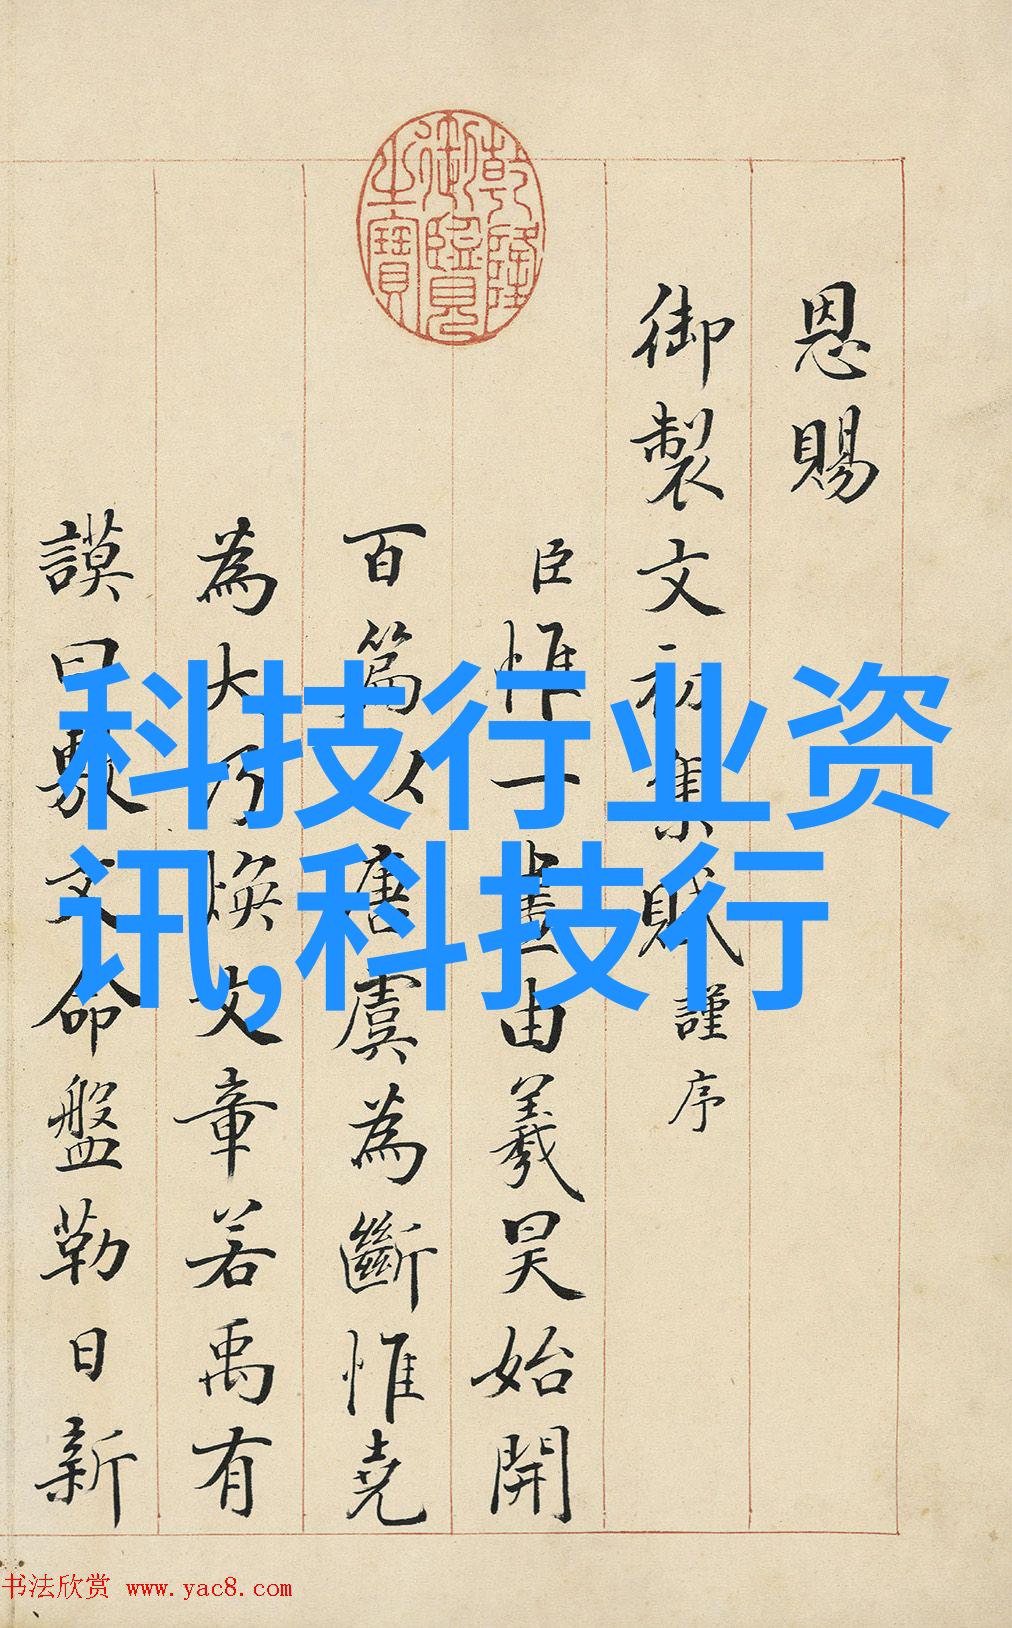 乾隆
御覽
之寶
恩賜
御製文初集賦謹序
臣惟一畫由羲昊始開
百篇以唐虞為斷惟堯
為大乃煥文章若禹有
謨曰敷文命盤勒日新
科技行业资
讯,科技行
书法欣赏 www.yac8.com